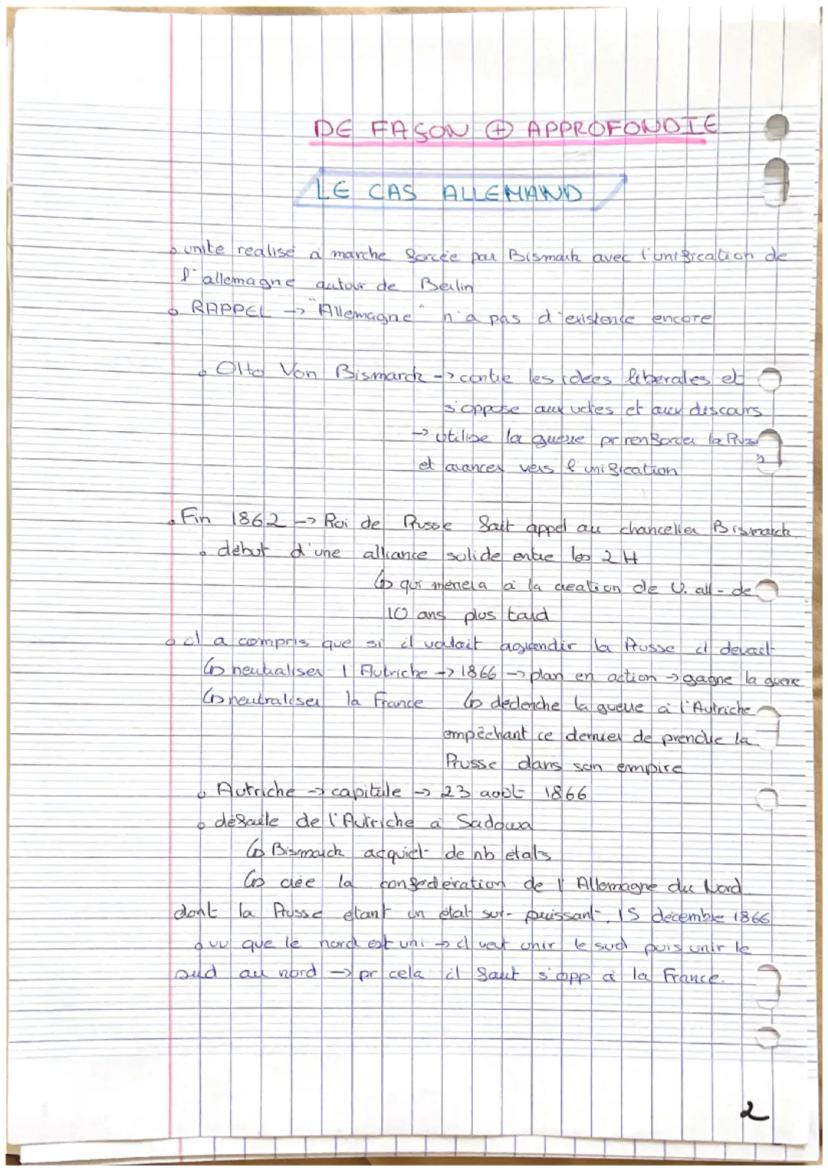 DE FAÇON ⊕ APPROFONDIE
LE CAS ALLEMAND
unité realisé à marche forcée par Bismark avec l'unification de
l'allemagne autour de Berlin
RAPPEL -> "Allemagne" n'a pas d'existence encore
Otto Von Bismarck -> contre les idées liberales et
s'oppose aux votes et aux discours
-> utilise la guerre pr renforcer la Prusse
et avancer vers l'unification
Fin 1862 -> Roi de Prusse fait appel au chancelier Bismarck
début d'une alliance solide entre les 2 H
↳ qui mènera à la création de U. all- de
10 ans plus tard
il a compris que si il voulait agrandir la Prusse il devait
↳ neutraliser l'Autriche -> 1866 -> plan en action -> gagne la guerre
↳ neutraliser la France ↳ déclenche la guerre à l'Autriche
empêchant ce dernier de prendre la
Prusse dans son empire
Autriche -> capitule -> 23 août 1866
défaite de l'Autriche à Sadowa
↳ Bismarck acquiet de nb états
↳ crée la confédération de l'Allemagne du Nord
dont la Prusse étant un état sur-puissant. 15 décembre 1866
vu que le nord est uni -> il veut unir le sud puis unir le
sud au nord -> pr cela il faut s'opp à la France.
2